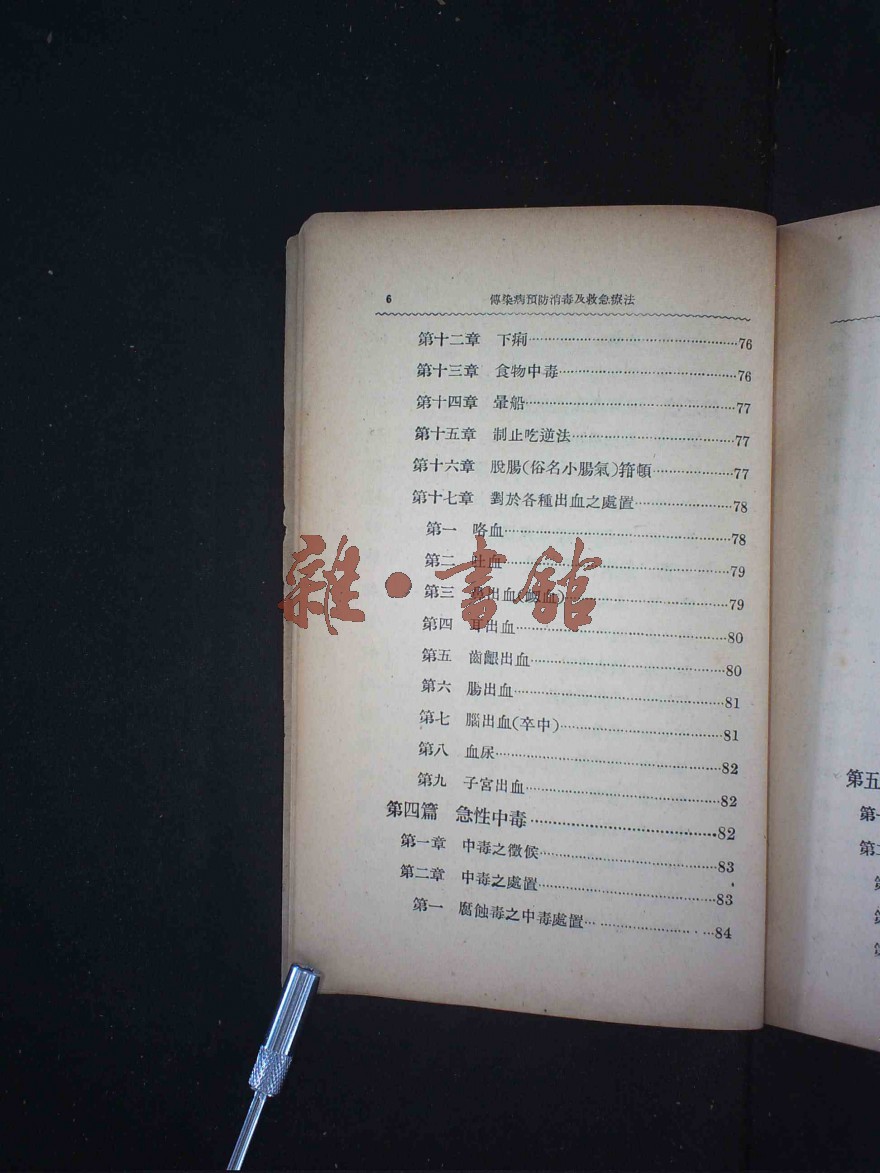 6 傳染病預防消毒及救急療法
第十二章 下痢………76
第十三章 食物中毒………76
第十四章 暈船………77
第十五章 制止吃逆法………77
第十六章 脫腸(俗名小腸氣)箝頓………77
第十七章 對於各種出血之處置………78
第一 咯血………78
第二 吐血………79
第三 鼻出血(衄血)………79
第四 耳出血………80
第五 齒齦出血………80
第六 腸出血………81
第七 腦出血(卒中)………81
第八 血尿………82
第九 子宮出血………82
第四篇 急性中毒………82
第一章 中毒之徵候………83
第二章 中毒之處置………83
第一 腐蝕毒之中毒處置………84
雜·書館
第五
第一
第二